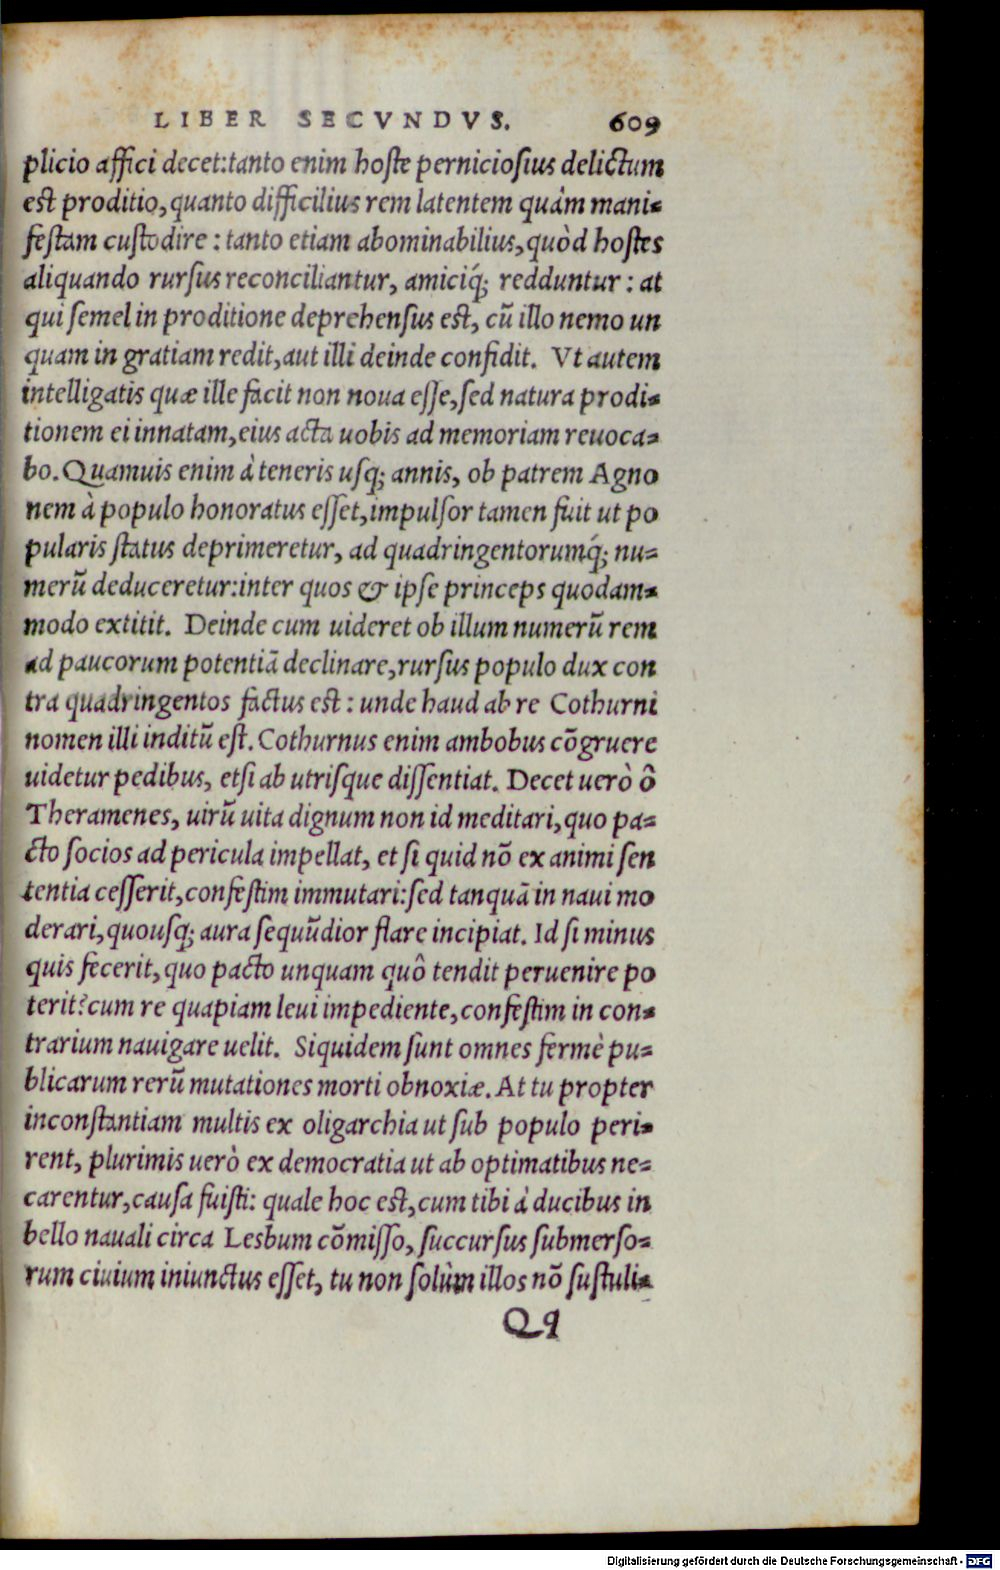 LIBER SECVNDVS. 609
plicio affici decet:tanto enim hoste perniciosius delictum
est proditio, quanto difficilius rem latentem quàm mani-
festam custodire : tanto etiam abominabilius, quòd hostes
aliquando rursus reconciliantur, amiciq́; redduntur : at
qui semel in proditione deprehensus est, cū illo nemo un
quam in gratiam redit, aut illi deinde confidit. Vt autem
intelligatis quæ ille facit non noua esse, sed natura prodi-
tionem ei innatam, eius acta uobis ad memoriam reuoca-
bo. Quamuis enim à teneris usq; annis, ob patrem Agno
nem à populo honoratus esset, impulsor tamen fuit ut po
pularis status deprimeretur, ad quadringentorumq́; nu-
merū deduceretur:inter quos & ipse princeps quodam-
modo extitit. Deinde cum uideret ob illum numerū rem
ad paucorum potentiā declinare, rursus populo dux con
tra quadringentos factus est : unde haud ab re Cothurni
nomen illi inditū est. Cothurnus enim ambobus cōgruere
uidetur pedibus, etsi ab utrisque dissentiat. Decet uerò ô
Theramenes, uirū uita dignum non id meditari, quo pa-
cto socios ad pericula impellat, et si quid nō ex animi sen
tentia cesserit, confestim immutari: sed tanquā in naui mo
derari, quousq; aura sequūdior flare incipiat. Id si minus
quis fecerit, quo pacto unquam quô tendit peruenire po
terit? cum re quapiam leui impediente, confestim in con-
trarium nauigare uelit. Siquidem sunt omnes fermè pu-
blicarum rerū mutationes morti obnoxiæ. At tu propter
inconstantiam multis ex oligarchia ut sub populo peri-
rent, plurimis uerò ex democratia ut ab optimatibus ne-
carentur, causa fuisti: quale hoc est, cum tibi à ducibus in
bello nauali circa Lesbum cōmisso, succursus submerso-
rum ciuium iniunctus esset, tu non solùm illos nō sustuli-
Qq
Digitalisierung gefördert durch die Deutsche Forschungsgemeinschaft - DFG